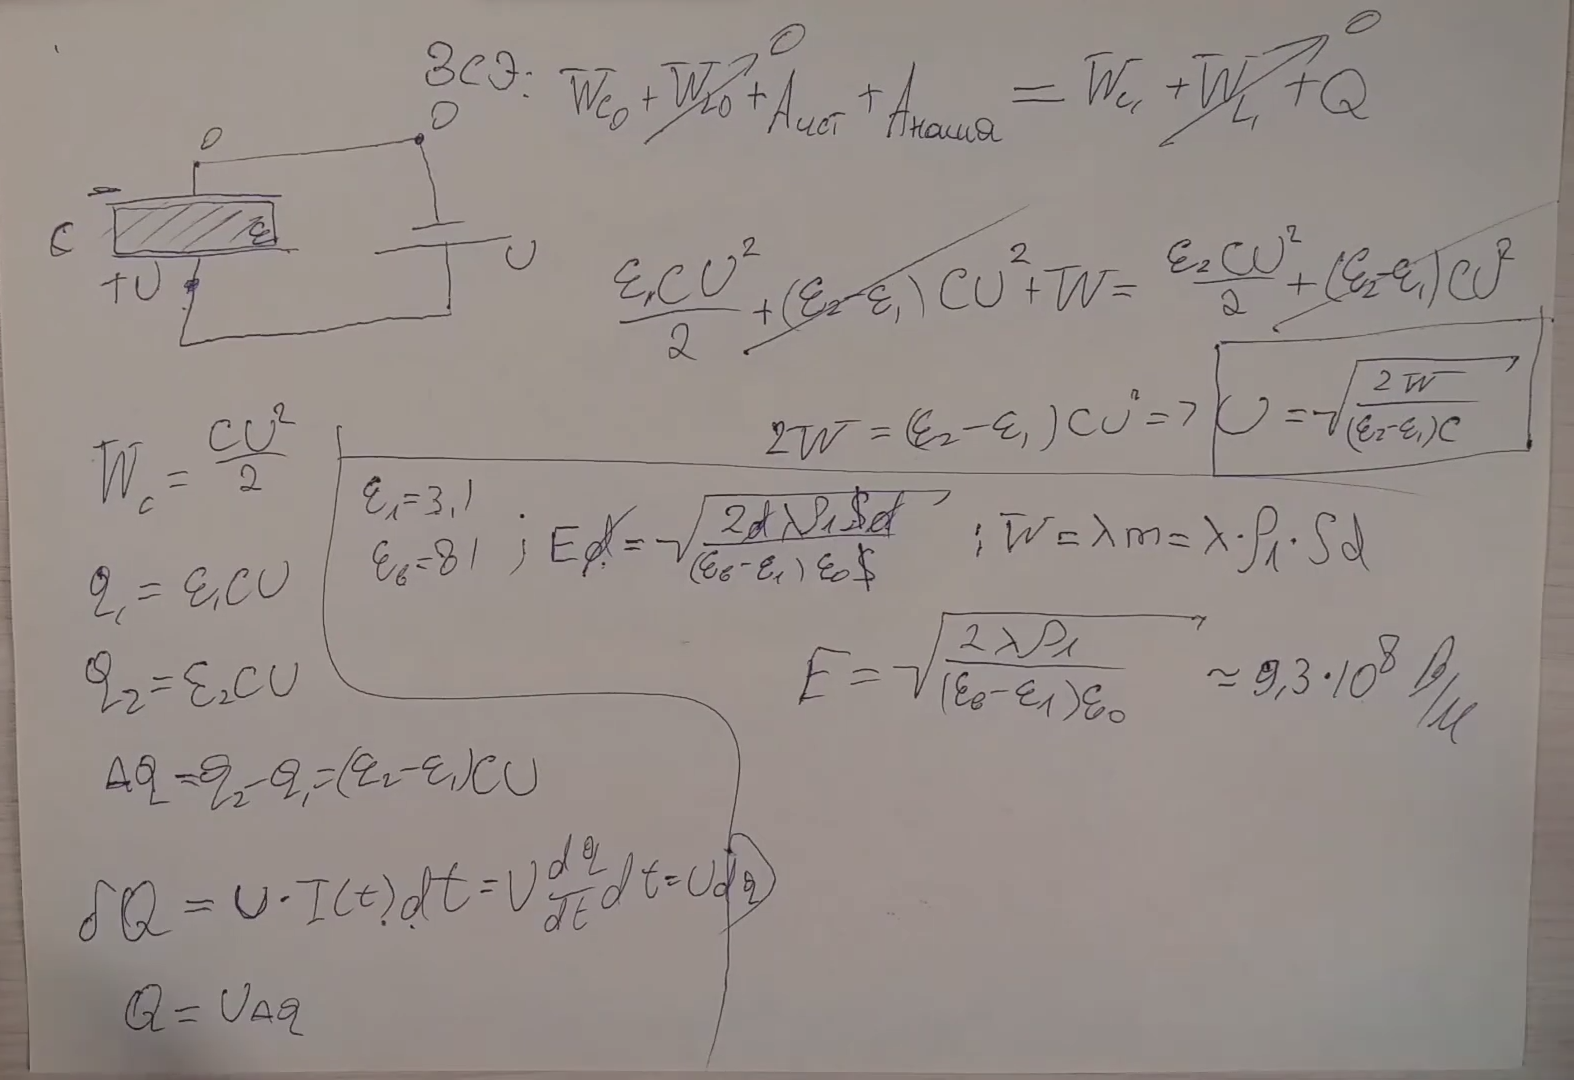 ЗСЭ: W_{C0} + W_{L0} + A_{ист} + A_{наша} = W_{C1} + W_{L1} + Q
0
0
0
0
-
C
ε
+U
U
ε₁CU²/2 + (ε₂-ε₁)CU² + W = ε₂CU²/2 + (ε₂-ε₁)CU²
2W = (ε₂-ε₁)CU² => U = √(2W/((ε₂-ε₁)C))
W_c = CU²/2
q₁ = ε₁CU
q₂ = ε₂CU
Δq = q₂-q₁ = (ε₂-ε₁)CU
δQ = U·I(t)dt = U dq/dt dt = Udq
Q = UΔq
ε₁ = 3,1
ε_в = 81
; Ed = √(2dλρ₁Sd/((ε_в-ε₁)ε₀S)) ; W = λm = λ·ρ₁·Sd
E = √(2λρ₁/((ε_в-ε₁)ε₀)) ≈ 9,3·10⁸ В/м